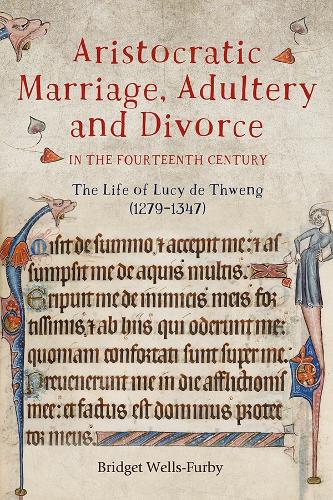 Aristocratic
Marriage, Adultery
and Divorce
IN THE FOURTEENTH CENTURY
The Life of Lucy de Thweng
(1279–1347)
Misit de summo, ⁊ accepit me: ⁊ as
sumpsit me de aquis multis.
Eripuit me de inimicis meis for
tissimis, ⁊ ab hiis qui oderunt me:
quoniam confortati sunt super me.
Prevenerunt me in die afflictionis
mee: et factus est dominus protec
tor meus.
Bridget Wells-Furby